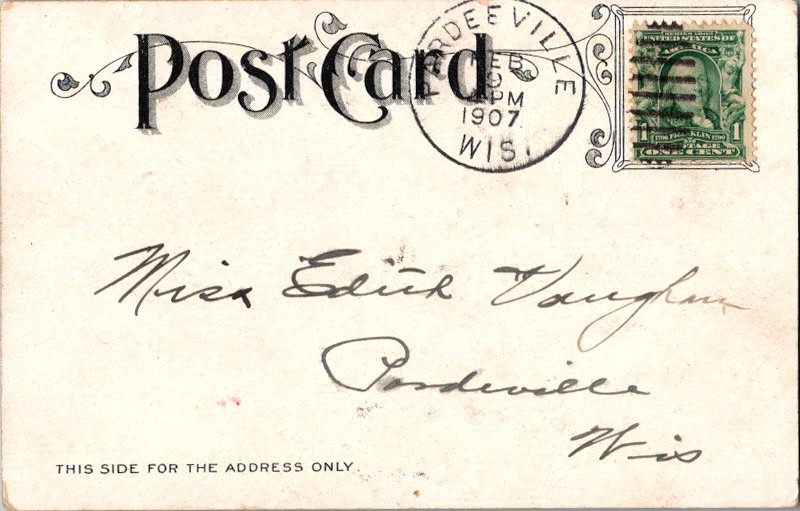 Post Card
PARDEEVILLE
FEB
9
4 PM
1907
WIS.
SERIES 1902
UNITED STATES OF
1706 FRANKLIN 1790
1 POSTAGE 1
ONE CENT
Miss Edith Vaughan
Pardeville
Wis
THIS SIDE FOR THE ADDRESS ONLY.